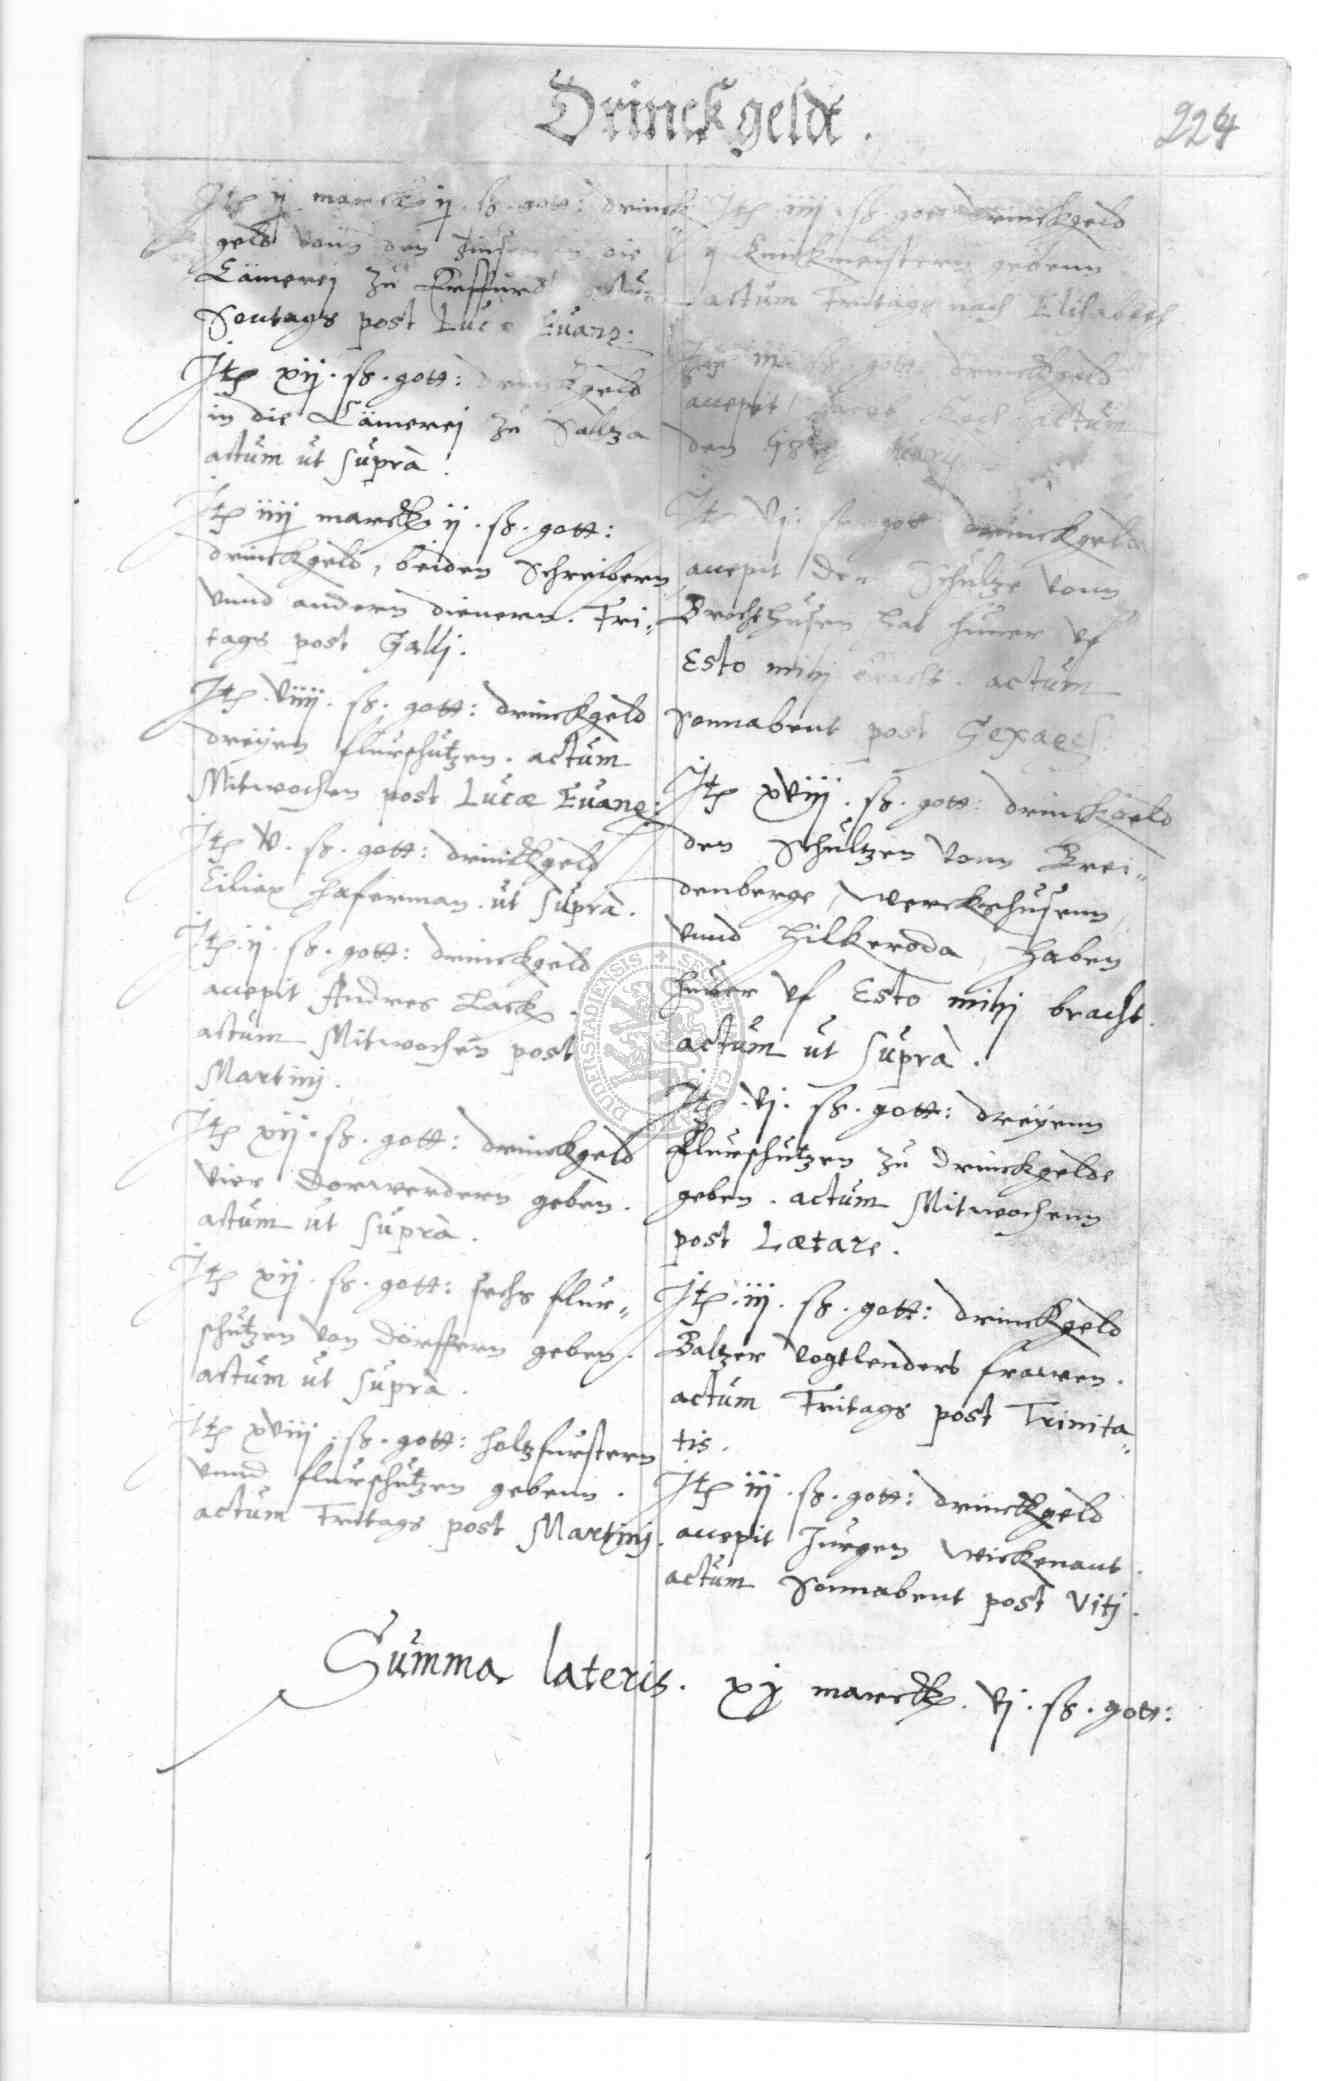 Drinckgeldt.
224
Itp ij marck ij. ß. gott: drinck
geld vonn den Zinsen in die
Cämerej zu Erffurd actum
Sontags post Lucæ Evang:
Itp xij. ß. gott: drinckgeld
in die Cämerej zu Saltza
actum ut supra.
Itp iiij marck ij. ß. gott:
drinckgeld, beiden Schreibern
vnnd andern dienern. Fri„
tags post Galli.
Itp viiij. ß. gott: drinckgeld
dreyen flurschutzen. actum
Mitwochen post Lucæ Evang:
Itp v. ß. gott: drinckgeld
Ciliax Haferman. ut supra.
Itp ij. ß. gott: drinckgeld
accepit Andres Lack.
actum Mitwochen post
Martinj.
Itp xij. ß. gott: drinckgeld
vier Dorwerdern geben.
actum ut supra.
Itp xij. ß. gott: sechs flur„
schutzen von dörffern geben.
actum ut supra.
Itp xviij. ß. gott: holtzfurstern
vnnd flurschutzen gebenn.
actum Fritags post Martinj.
Itp iiij. ß. gott drinckgeld
gebenn
actum Fritags nach Elisabeth
Itp iij. ß. gott: drinckgeld
accepit Jacob Koch actum
den
Itp vj. ß. gott drinckgeld
accepit der Schultze vonn
Brochthusen hat huner vf
Esto mihj bracht. actum
Sonnabent post Sexages:
Itp xviij. ß. gott: drinckgeld
den Schultzen vonn Brei„
denberge, Werckshusenn,
vnnd Hilkeroda, haben
huner vf Esto mihj bracht.
actum ut supra.
Itp. vj. ß. gott: dreyenn
flurschutzen zu drinckgelde
geben. actum Mitwochenn
post Lætare.
Itp. iij. ß. gott: drinckgeld
Baltzer Vogtlenders frawen.
actum Fritags post Trinita„
tis.
Itp iij. ß. gott: drinckgeld
accepit Jurgen Wickenant.
actum Sonnabent post Vitj.
Summa lateris. xj marck. vj. ß. gott: